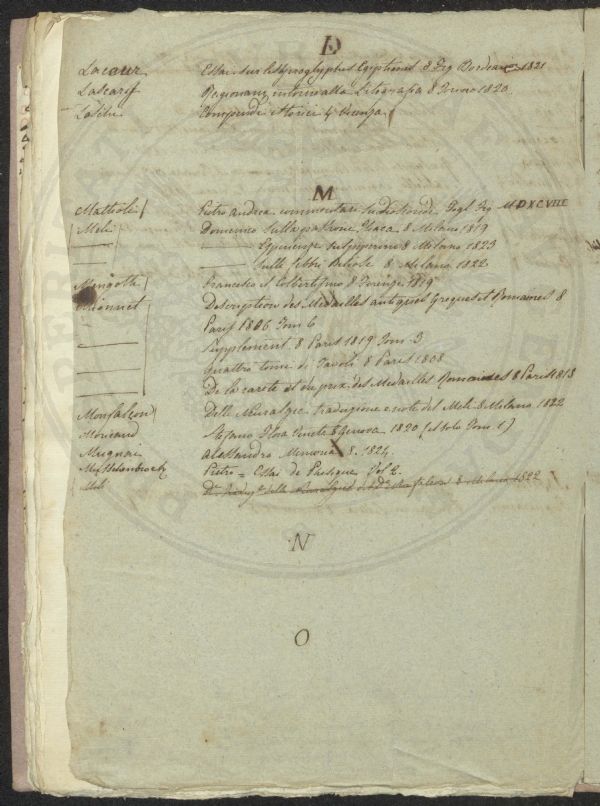 D
Lacour Essai sur les hyeroglyphes Egiptiens 8 Fig Bordeaux 1821
Lascarif Ragionam intorno alla Litografia 8 Torino 1820
Compendi Storici 4 Vicenza
M
Mattioli Pietro Andrea commentari Fogl Fig MDXCVIII
Meli Domenico Sulla 8 Milano 1819
— Esperienze 8 Milano 1823
— Sulle febbri Biliose 8 Milano 1822
Mengotti Francesco il Colbertismo 8 Firenze 1819
Mionnet Description des Medailles antiques Greques et Romaines 8
Paris 1806 Tom 6
— Supplement 8 Paris 1819 Tom. 3
— quattro tomi di Tavole 8 Paris 1808
— De la rareté et du prix des Medailles Romaines 8 Paris 1815
Monfalcon Delle Nevralgie traduzione e note del Meli 8 Milano 1822
Moricand Stefano Flora Veneta 8 Genova 1820 (il solo Tomo 1)
Mugnai Alessandro Memoria 8. 1824.
Musschenbroek Pietro = Essai de Phisique Vol 2.
Meli 8 Milano 1822
N
O